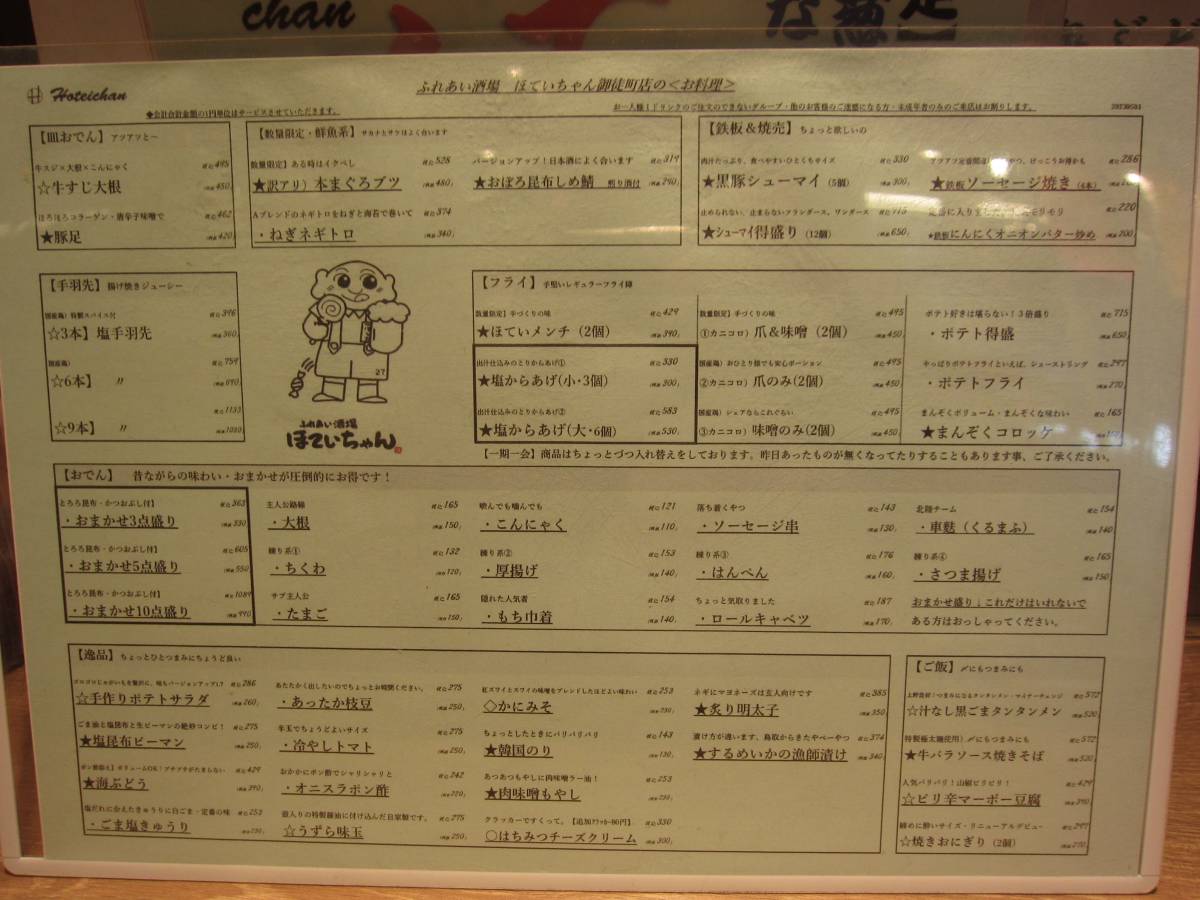 chan
Hoteichan
ふれあい酒場 ほていちゃん御徒町店の<お料理>
★会計合計金額の1円単位はサービスさせていただきます。
お一人様1ドリンクのご注文のできないグループ・他のお客様のご迷惑になる方・未成年者のみのご来店はお断りします。
20230501
【皿おでん】 アツアツと～
牛スジ×大根×こんにゃく 税込495
☆牛すじ大根 (税抜450)
ほろほろコラーゲン・唐辛子味噌で 税込462
★豚足 (税抜420)
【数量限定・鮮魚系】 サカナとサケはよく合います
数量限定】ある時はイクべし 税込528
★訳アリ）本まぐろブツ (税抜480)
Aブレンドのネギトロをねぎと海苔で巻いて 税込374
・ねぎネギトロ (税抜340)
バージョンアップ！日本酒によく合います 税込319
★おぼろ昆布しめ鯖 煎り酒付 (税抜290)
【鉄板＆焼売】 ちょっと欲しいの
肉汁たっぷり、食べやすいひとくちサイズ 税込330
★黒豚シューマイ (5個) (税抜300)
止められない、止まらないフランダース、ワンダース 税込715
★シューマイ得盛り (12個) (税抜650)
けっこうお得かも 税込286
★鉄板ソーセージ焼き (4本)
税込220
★鉄板にんにくオニオンバター炒め (税抜200)
【手羽先】 揚げ焼きジューシー
国産鶏）特製スパイス付 税込396
☆3本】塩手羽先 (税抜360)
国産鶏） 税込759
☆6本】 〃 (税抜690)
税込1133
☆9本】 〃 (税抜1030)
27
ふれあい酒場
ほていちゃん
【フライ】 手堅いレギュラーフライ陣
数量限定】手づくりの味 税込429
★ほていメンチ（2個） (税抜390)
出汁仕込みのとりからあげ① 税込330
★塩からあげ(小・3個) (税抜300)
出汁仕込みのとりからあげ② 税込583
★塩からあげ(大・6個) (税抜530)
数量限定】手づくりの味 税込495
①カニコロ）爪＆味噌（2個） (税抜450)
国産鶏）おひとり様でも安心ポーション 税込495
②カニコロ）爪のみ(2個) (税抜450)
国産鶏）シェアならこれぐらい 税込495
③カニコロ）味噌のみ(2個) (税抜450)
ポテト好きは堪らない！3倍盛り 税込715
・ポテト得盛 (税抜650)
やっぱりポテトフライといえば、シューストリング 税込297
・ポテトフライ (税抜270)
まんぞくボリューム・まんぞくな味わい 税込165
★まんぞくコロッケ
【一期一会】商品はちょっとづつ入れ替えをしております。昨日あったものが無くなってたりすることもあります事、ご了承ください。
【おでん】 昔ながらの味わい・おまかせが圧倒的にお得です！
とろろ昆布・かつおぶし付】 税込363
・おまかせ3点盛り (税抜330)
とろろ昆布・かつおぶし付】 税込605
・おまかせ5点盛り (税抜550)
とろろ昆布・かつおぶし付】 税込1089
・おまかせ10点盛り (税抜990)
主人公路線 税込165
・大根 (税抜150)
練り系① 税込132
・ちくわ (税抜120)
サブ主人公 税込165
・たまご (税抜150)
噛んでも噛んでも 税込121
・こんにゃく (税抜110)
練り系② 税込153
・厚揚げ (税抜140)
隠れた人気者 税込154
・もち巾着 (税抜140)
落ち着くやつ 税込143
・ソーセージ串 (税抜130)
練り系③ 税込176
・はんぺん (税抜160)
ちょっと気取りました 税込187
・ロールキャベツ (税抜170)
北陸チーム 税込154
・車麩（くるまふ） (税抜140)
練り系④ 税込165
・さつま揚げ (税抜150)
おまかせ盛り：これだけはいれないで
ある方はおっしゃってください。
【逸品】 ちょっとひとつまみにちょうど良い
ゴロゴロじゃがいもを贅沢に、味もバージョンアップ！ 税込286
☆手作りポテトサラダ (税抜260)
ごま油と塩昆布と生ピーマンの絶妙コンビ！ 税込275
★塩昆布ピーマン (税抜250)
ポン酢添え】ボリュームOK！プチプチがたまらない 税込429
★海ぶどう (税抜390)
塩だれに合えたきゅうりに白ごま・定番の味 税込253
・ごま塩きゅうり (税抜230)
あたたかく出したいのでちょっとお時間ください。 税込275
・あったか枝豆 (税抜250)
辛玉でちょうどよい 税込275
・冷やしトマト (税抜250)
おかかにポン酢でシャリシャリと 税込242
・オニスラポン酢 (税抜220)
壺入りの特製醤油に付け込んだ自家製です。 税込275
☆うずら味玉 (税抜250)
紅ズワイとズワイの味噌をブレンドしたほどよい味わい 税込253
◇かにみそ (税抜230)
ちょっとしたときにパリパリパリ 税込143
★韓国のり (税抜130)
あつあつもやしに肉味噌ラー油！ 税込253
★肉味噌もやし (税抜230)
クラッカーですくって。【追加クラッカー80円】 税込330
○はちみつチーズクリーム (税抜300)
ネギにマヨネーズは玄人向けです 税込385
★炙り明太子 (税抜350)
漬け方が違います、鳥取からきたやべーやつ 税込374
★するめいかの漁師漬け (税抜340)
【ご飯】 〆にもつまみにも
税込572
☆汁なし黒ごまタンタンメン (税抜520)
特製極太麺使用）〆にもつまみにも 税込572
★牛バラソース焼きそば (税抜520)
人気バリバリ！山椒ピリピリ！ 税込429
☆ピリ辛マーボー豆腐 (税抜390)
締めに酔いサイズ・リニューアルデビュー 税込297
☆焼きおにぎり（2個） (税抜270)